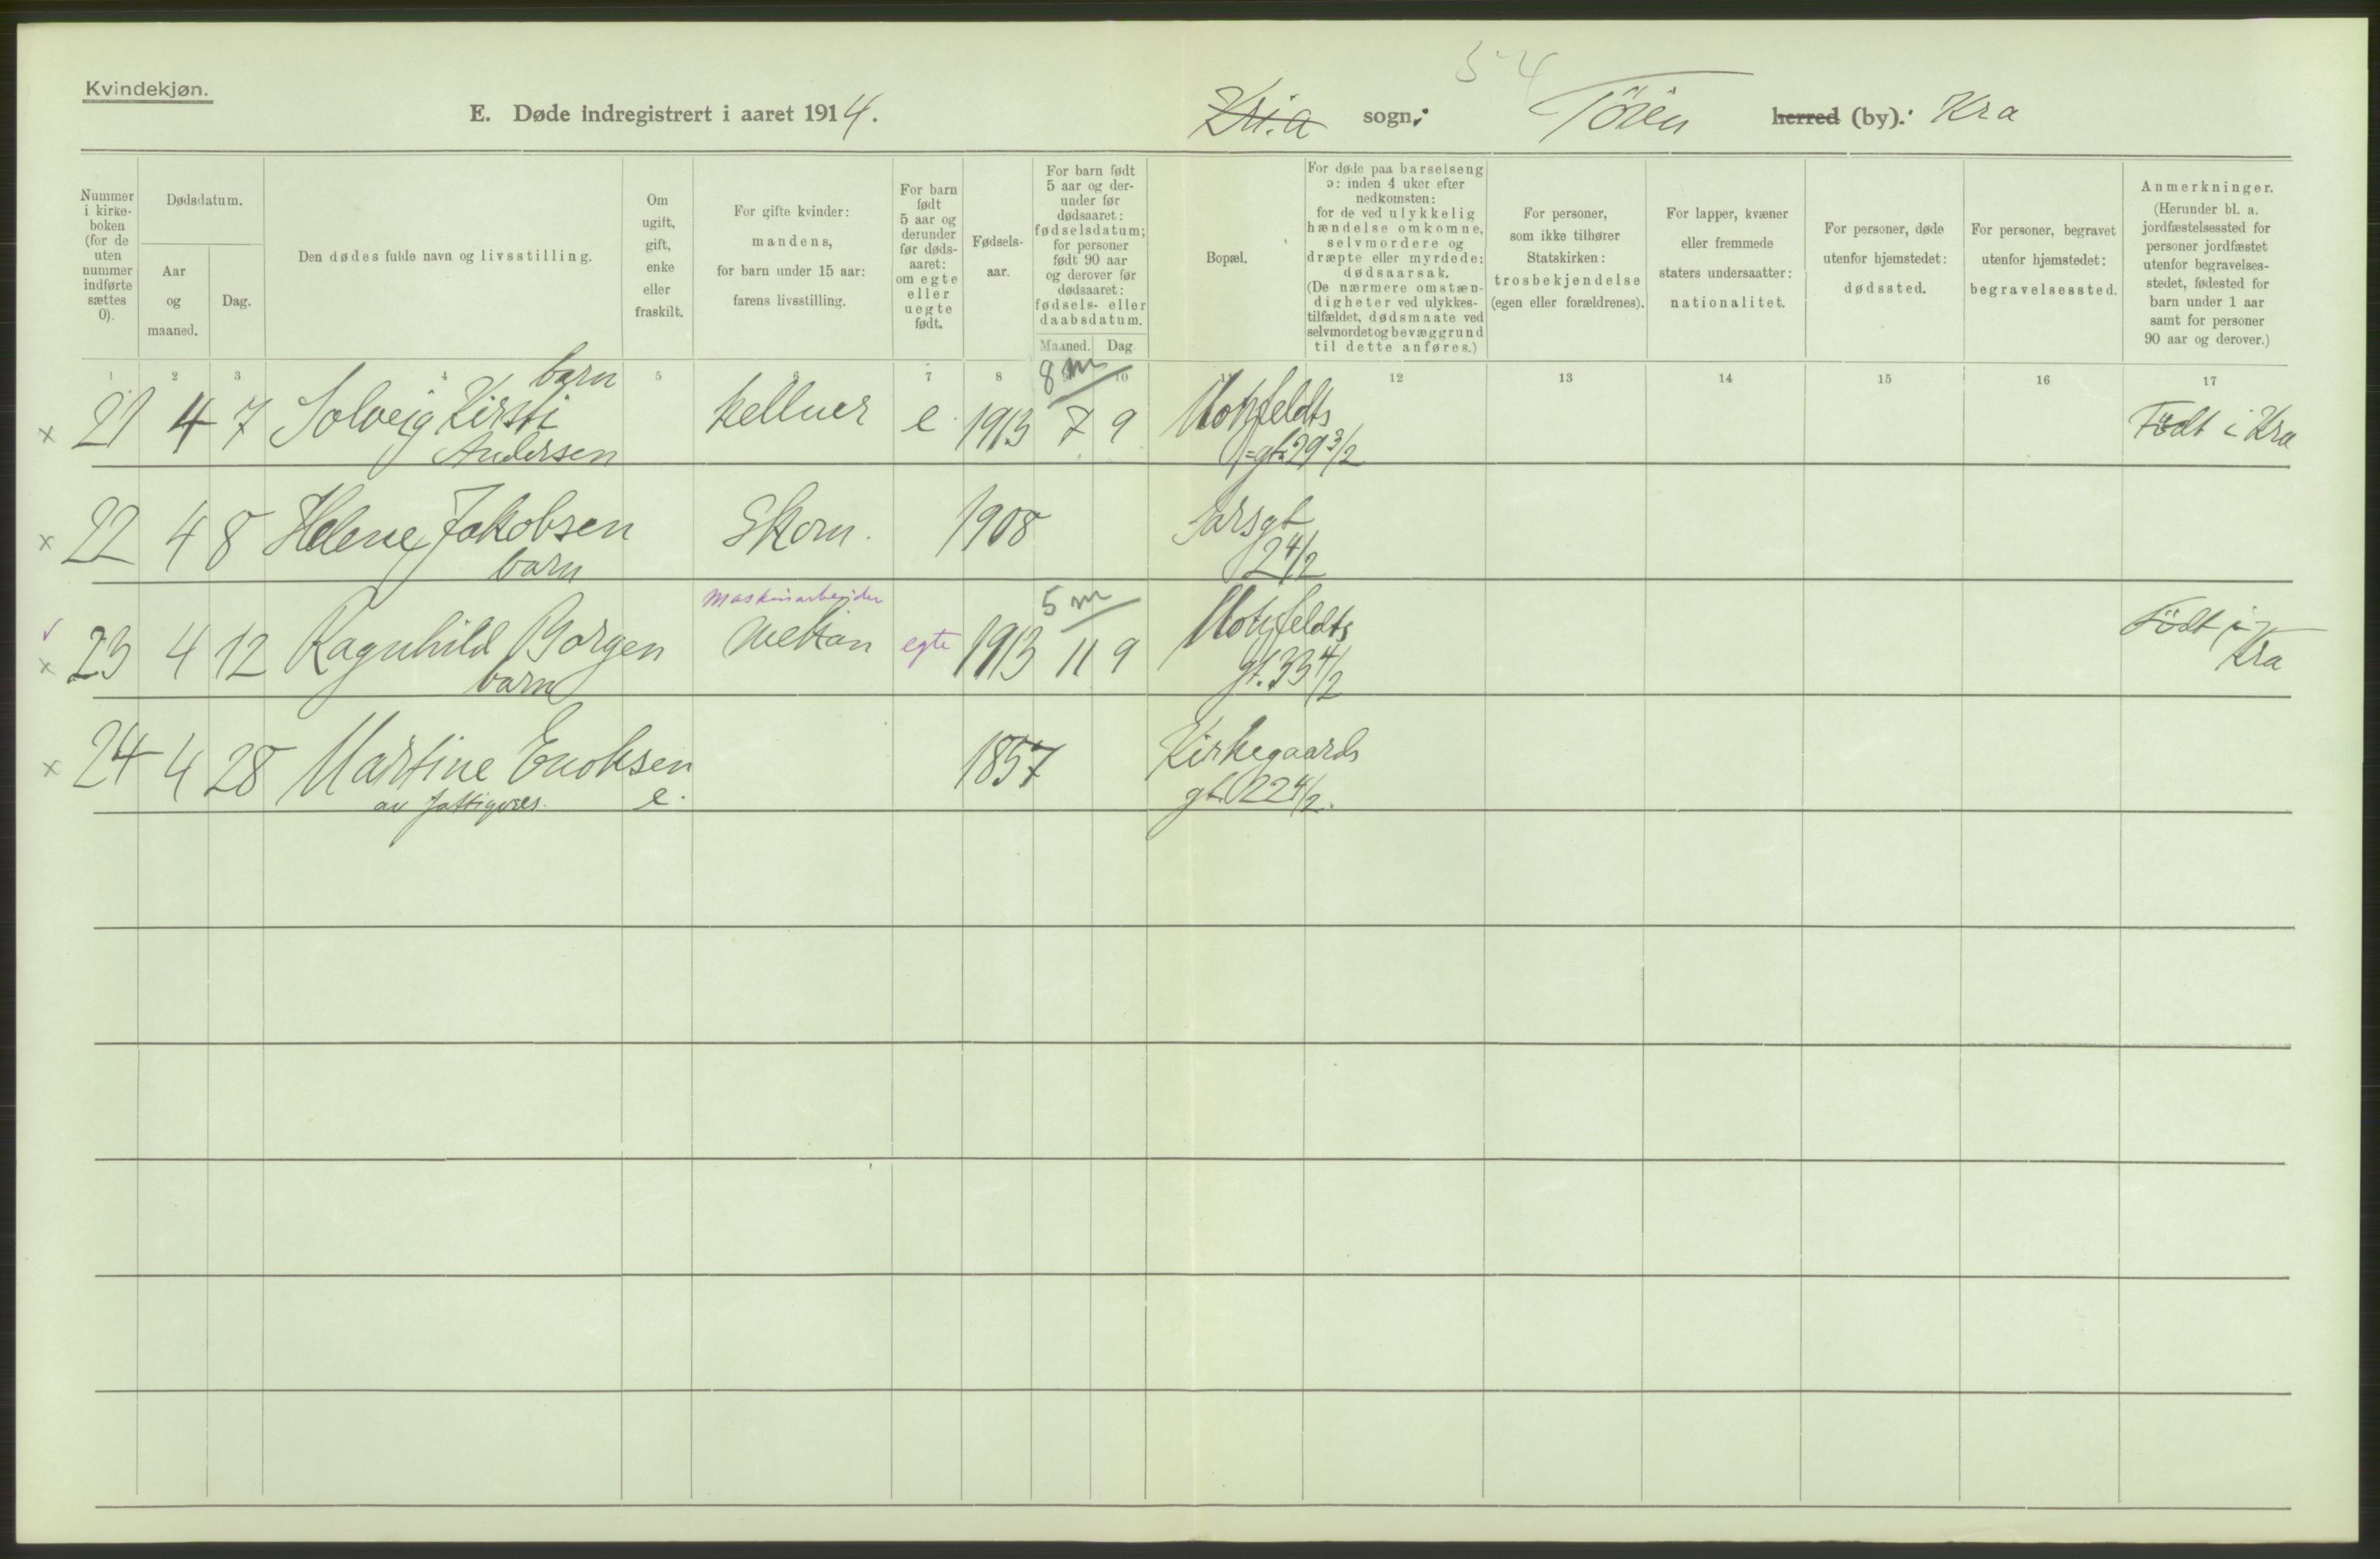 54
Kvindekjøn.
E. Døde indregistrert i aaret 1914. Kri.a sogn: Töien herred (by): Kra
Nummer
i kirke-
boken
(for de
uten
nummer
indførte
sættes
0).
Dødsdatum.
Aar
og
maaned.
Dag.
Den dødes fulde navn og livsstilling.
Om
ugift,
gift,
enke
eller
fraskilt.
For gifte kvinder:
mandens,
for barn under 15 aar:
farens livsstilling.
For barn
født
5 aar og
derunder
før døds-
aaret:
om egte
eller
uegte
født.
Fødsels-
aar.
For barn født
5 aar og der-
under før
dødsaaret:
fødselsdatum;
for personer
født 90 aar
og derover før
dødsaaret:
fødsels- eller
daabsdatum.
Maaned. Dag
Bopæl.
For døde paa barselseng
ɔ: inden 4 uker efter
nedkomsten:
for de ved ulykkelig
hændelse omkomne,
selvmordere og
dræpte eller myrdede:
dødsaarsak.
(De nærmere omstæn-
digheter ved ulykkes-
tilfældet, dødsmaate ved
selvmordet og bevæggrund
til dette anføres.)
For personer,
som ikke tilhører
Statskirken:
trosbekjendelse
(egen eller forældrenes).
For lapper, kvæner
eller fremmede
staters undersaatter:
nationalitet.
For personer, døde
utenfor hjemstedet:
dødssted.
For personer, begravet
utenfor hjemstedet:
begravelsessted.
Anmerkninger.
(Herunder bl. a.
jordfæstelsessted for
personer jordfæstet
utenfor begravelses-
stedet, fødested for
barn under 1 aar
samt for personer
90 aar og derover.)
1 2 3 4 5 6 7 8 9 10 11 12 13 14 15 16 17
barn 8 m
x 21 4 7 Solveig Kirsti kellner e. 1913 7 9 Motzfeldts Födt i Kra
Andersen gt. 29 3/2
x 22 4 8 Helene Jakobsen Skom. 1908 Sarsgt
barn 2 4/2
Maskinarbeider 5 m
x 23 4 12 Ragnhild Borgen Mekan egte 1913 11 9 Motzfeldts Födt i
barn gt. 33 4/2 Kra
x 24 4 28 Martine Enoksen 1857 Kirkegaards
av fattigvæs. e. gt. 22 4/2.